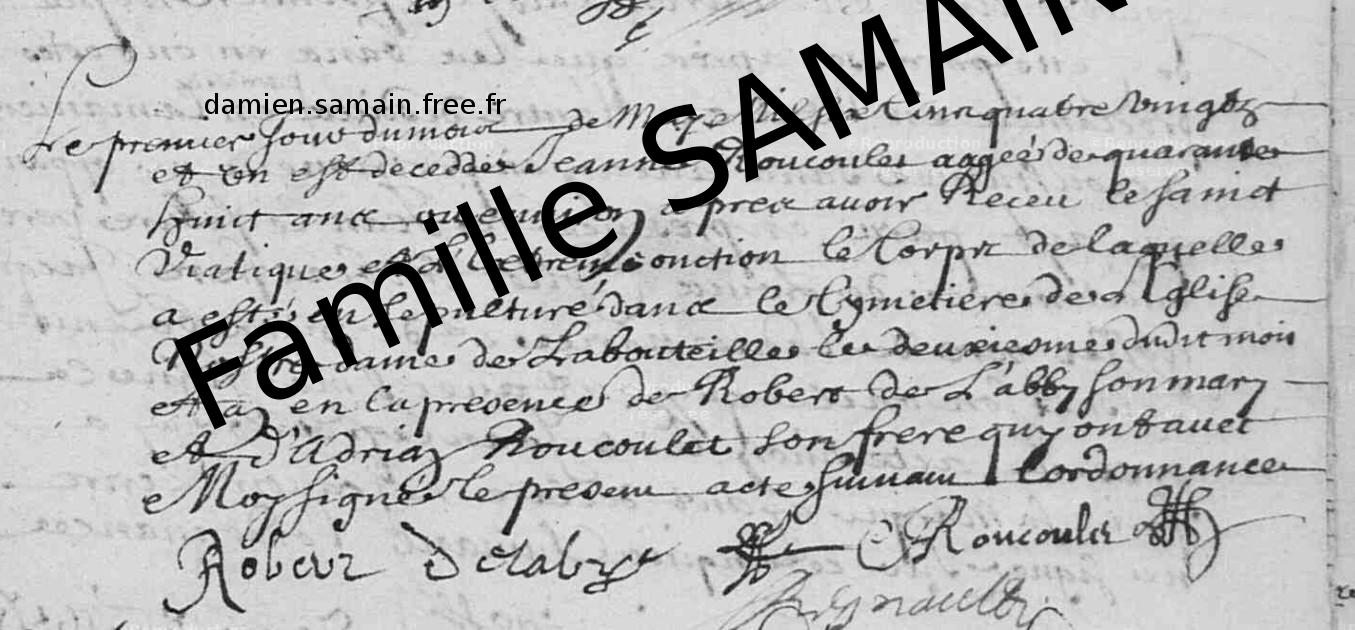 damien.samain.free.fr
Famille SAMAIN
Le premier Jour du mois de May Mil six Cens quatre vingtz
et un est decedée Jeanne Roucoulet aagée de quarante
huict ans ou environ apres avoir Receu le sainct
Viatique et L'extreme onction le Corps de laquelle
a esté en sepulture dans le Cymetiere de L'Eglise
Nostre dame de Labouteille le deuxiesme dudit mois
et an en la presence de Robert de L'abby son mary
et d'Adrian Roucoulet son frere quy ont avec
Moy signé le present acte suivant Lordonnance
Robert Delaby Roucoulet